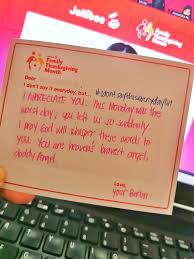 Jollibee
Family
Thanksgiving
Month
Dear
I don't say it everyday, but...
I APPRECIATE YOU. This Monday was the
worst day, you left us so suddenly
I pray God will whisper these words to
you. You are heaven's bravest angel,
daddy Angel.
Love,
your